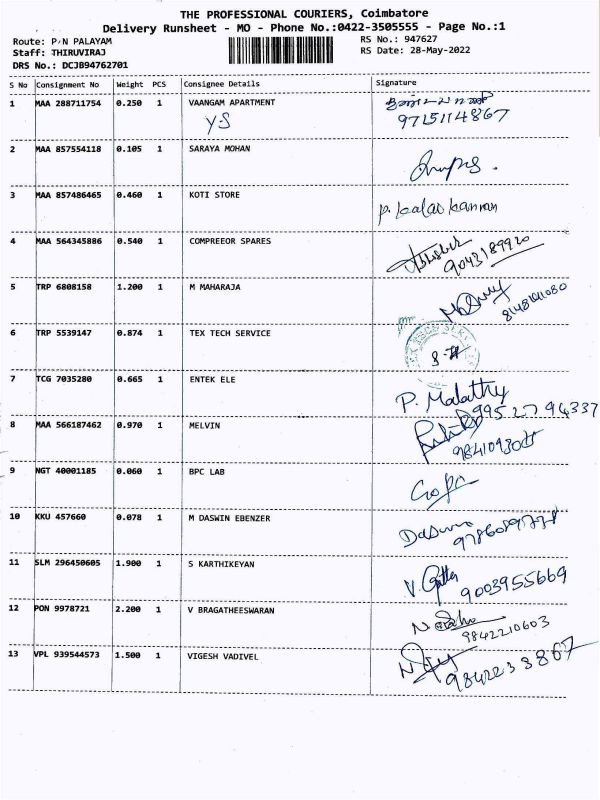 THE PROFESSIONAL COURIERS, Coimbatore
Delivery Runsheet - MO - Phone No.:0422-3505555 - Page No.:1
Route: P.N PALAYAM RS No.: 947627
Staff: THIRUVIRAJ RS Date: 28-May-2022
DRS No.: DCJB94762701
S No Consignment No Weight PCS Consignee Details Signature
1 MAA 288711754 0.250 1 VAANGAM APARTMENT
Y.S 9715114867
2 MAA 857554118 0.105 1 SARAYA MOHAN
3 MAA 857486465 0.460 1 KOTI STORE
P. Kalai kannan
4 MAA 564345886 0.540 1 COMPREEOR SPARES
9043189920
5 TRP 6808158 1.200 1 M MAHARAJA
6 TRP 5539147 0.874 1 TEX TECH SERVICE
7 TCG 7035280 0.665 1 ENTEK ELE
P. Malathy
9952794337
8 MAA 566187462 0.970 1 MELVIN
9 NGT 40001185 0.060 1 BPC LAB
10 KKU 457660 0.078 1 M DASWIN EBENZER
11 SLM 296450605 1.900 1 S KARTHIKEYAN
9003955669
12 PON 9978721 2.200 1 V BRAGATHEESWARAN
9842210603
13 VPL 939544573 1.500 1 VIGESH VADIVEL
9842238867